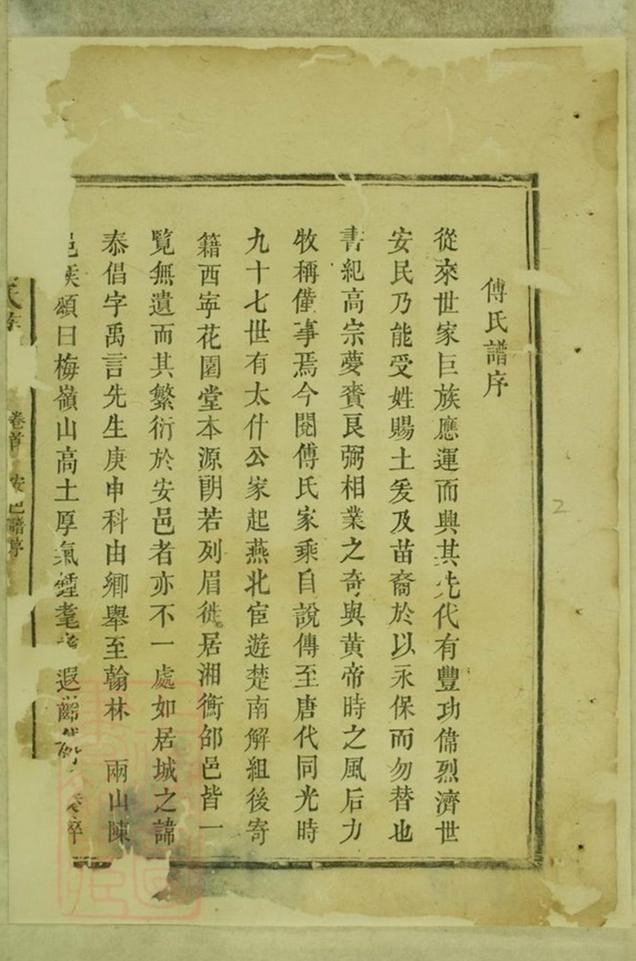 傅氏譜序
從來世家巨族應運而興其先代有豐功偉烈濟世
安民乃能受姓賜土爰及苗裔於以永保而勿替也
書紀高宗夢賚良弼相業之奇與黃帝時之風后力
牧稱僅事焉今閱傅氏家乘自說傳至唐代同光時
九十七世有太什公家起燕北宦遊楚南解組後寄
籍西寜花園堂本源朗若列眉徙居湘衡邵邑皆一
覽無遺而其繁衍於安邑者亦不一處如居城之諱
泰倡字禹言先生庚申科由鄉舉至翰林 兩山陳
邑侯頌曰梅嶺山高土厚氣鍾耄 遐
卷首 安邑譜序